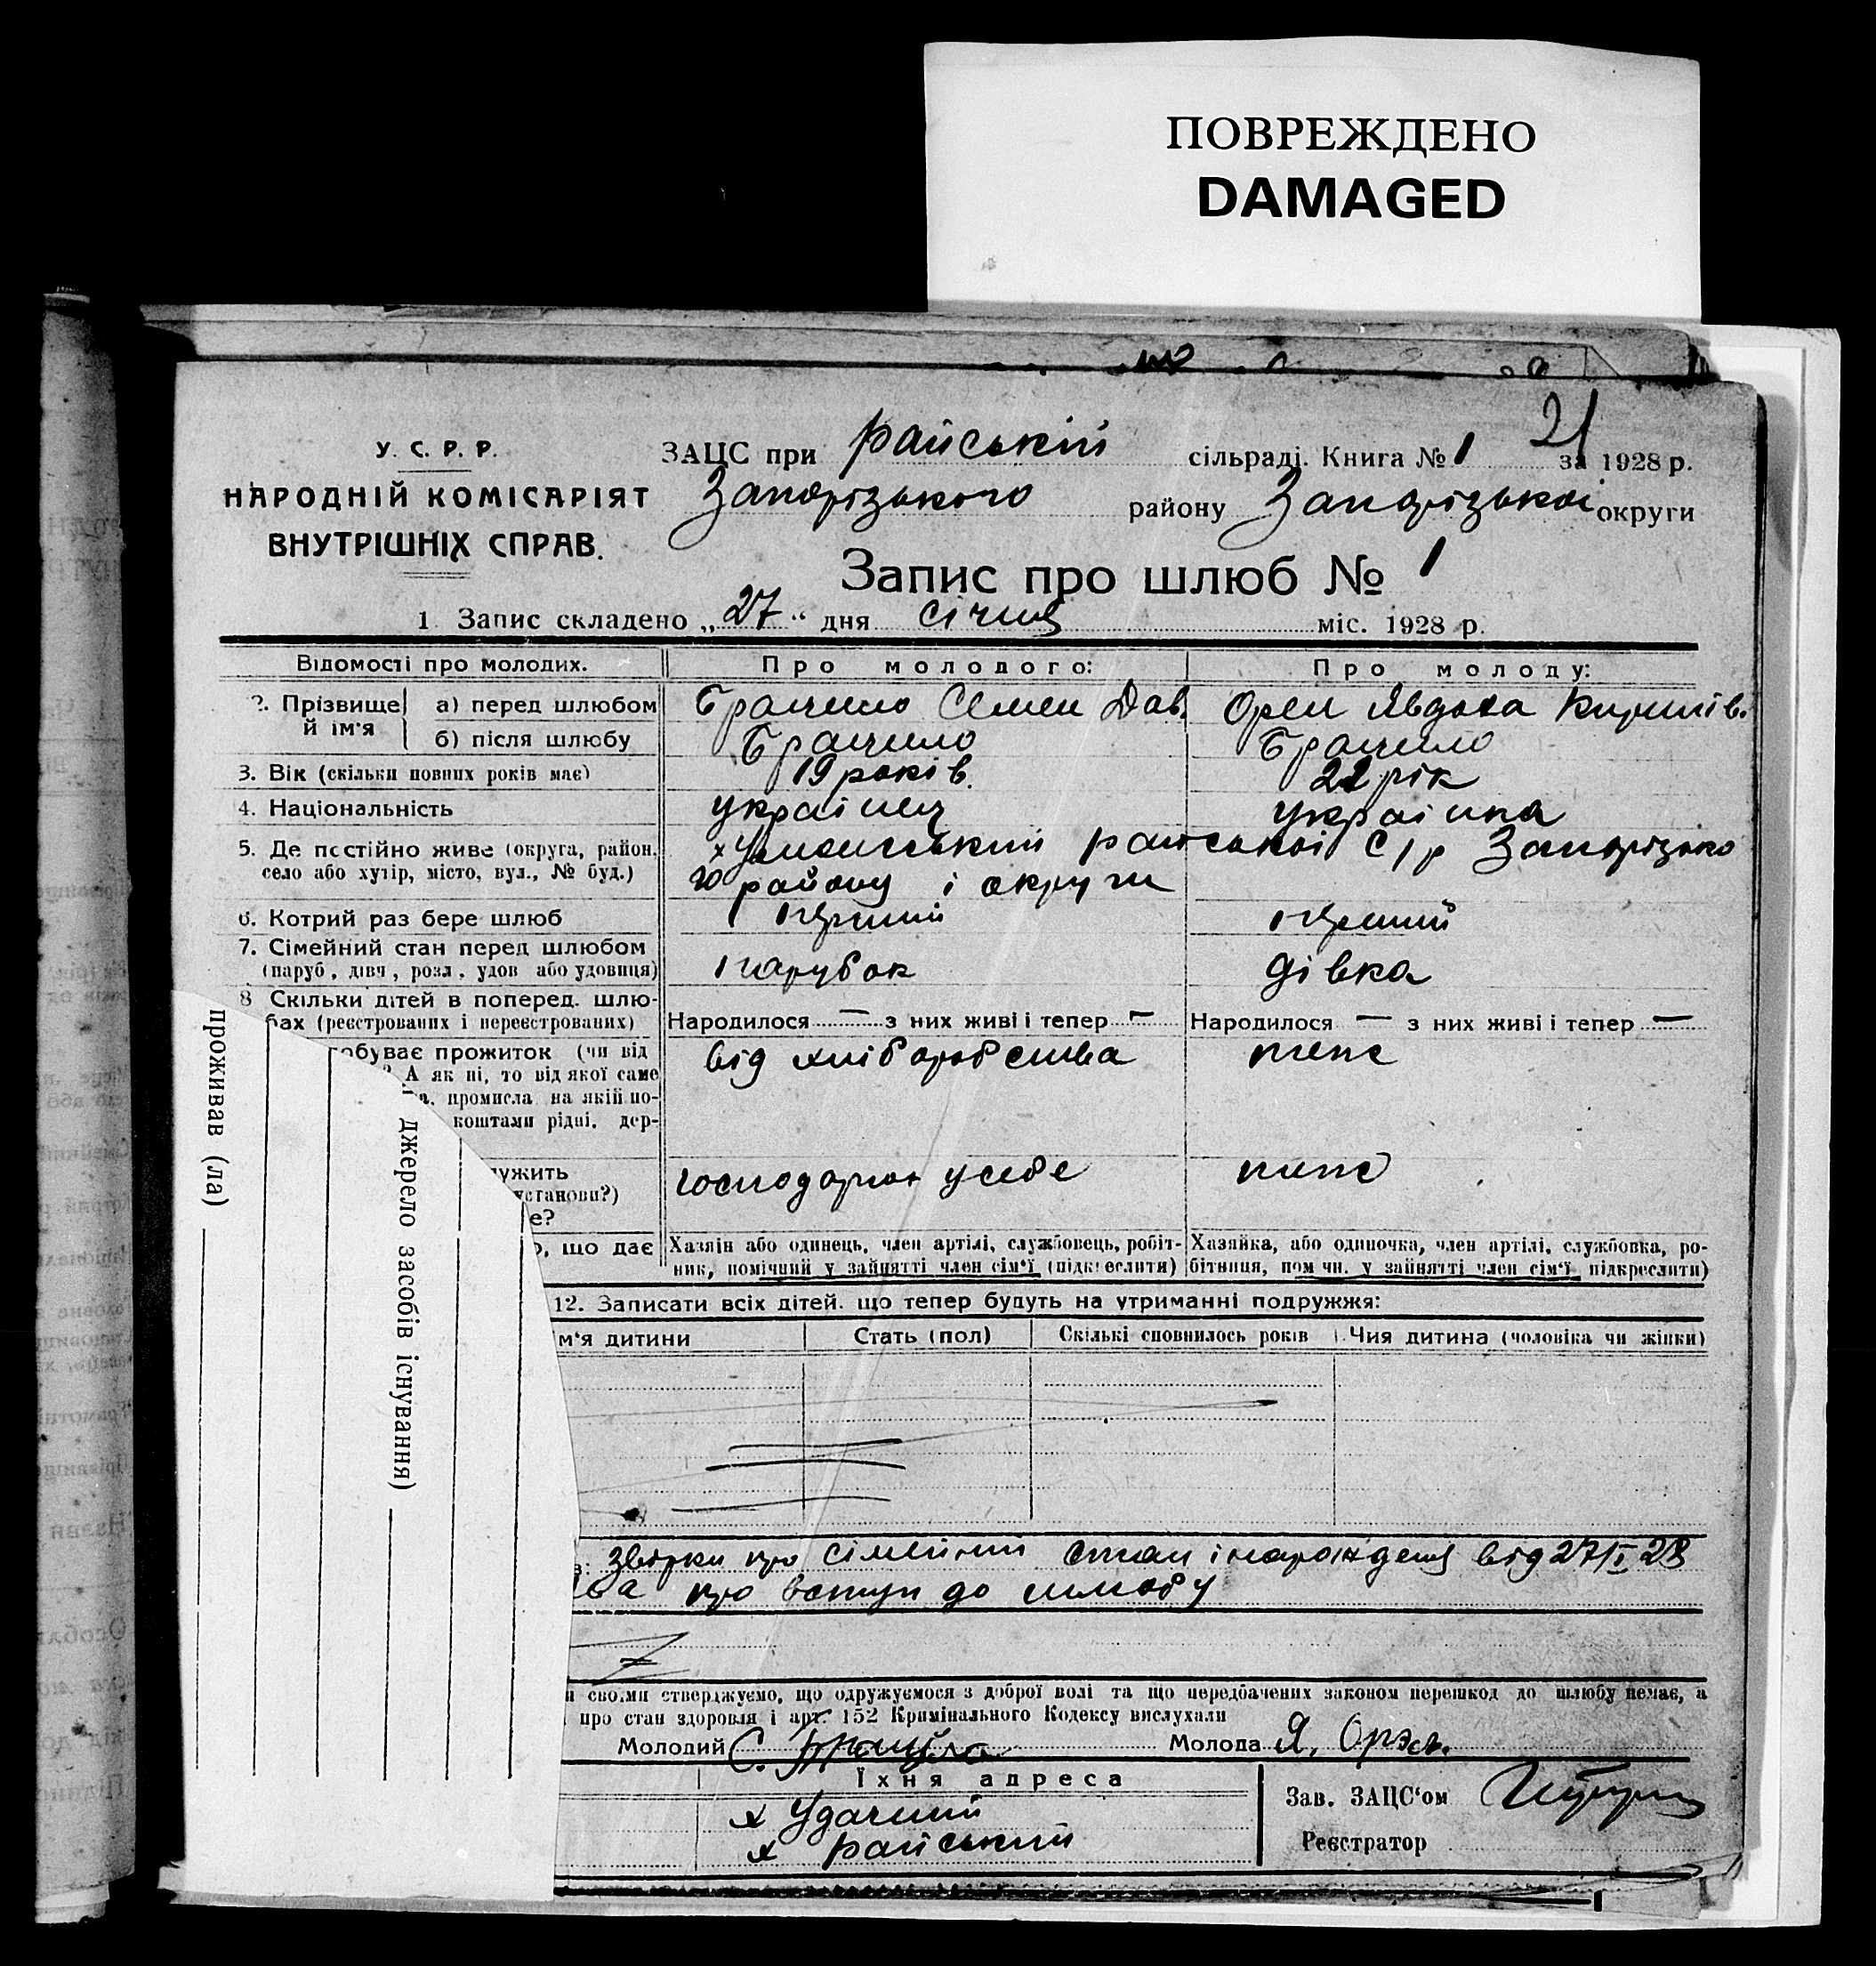 ПОВРЕЖДЕНО
DAMAGED
21
У. С. Р. Р.
НАРОДНІЙ КОМІСАРІЯТ
ВНУТРІШНІХ СПРАВ.
ЗАЦС при Райській сільраді. Книга № 1 за 1928 р.
Запорізького району Запорізької округи
Запис про шлюб № 1
1. Запис складено „27“ дня січня міс. 1928 р.
Відомості про молодих. Про молодого: Про молоду:
2. Прізвище й ім'я а) перед шлюбом Семен Дав. Орел Явдоха
б) після шлюбу
3. Вік (скільки повних років має) 19 років. рік
4. Національність українец українка
5. Де постійно живе (округа, район, село або хутір, місто, вул., № буд.) райської С/р Запорізько
го району і округи
6. Котрий раз бере шлюб перший перший
7. Сімейний стан перед шлюбом парубок дівка
(паруб., дівч., розл., удов. або удовиця)
8 Скільки дітей в поперед. шлю-
бах (реєстрованих і нереєстрованих) Народилося — з них живі і тепер — Народилося — з них живі і тепер —
обуває прожиток (чи від від хліборобства теж
? А як ні, то від якої саме
а, промисла на якій по-
коштами рідні, дер-
ужить господарює у себе теж
установи?)
е?
о, що дає Хазяїн або одинець, член артілі, службовець, робіт- Хазяйка, або одиночка, член артілі, службовка, ро-
ник, помічний у зайнятті член сім'ї (підкреслити) бітниця, помічн. у зайнятті член сім'ї підкреслити)
12. Записати всіх дітей, що тепер будуть на утриманні подружжя:
м'я дитини Стать (пол) Скількі сповнилось років Чия дитина (чоловіка чи жінки)
про сімейний стан і народження від 27/I 28
про вступ до шлюбу
и своїми стверджуємо, що одружуємося з доброї волі та що передбачених законом перешкод до шлюбу немає, а
про стан здоровія і арт. 152 Кримінального Кодексу вислухали
Молодий С. Молода Я. Орэл.
Їхня адреса
х Удачний
х райський
Зав. ЗАЦС'ом
Реєстратор
проживав (ла)
джерело засобів існування)